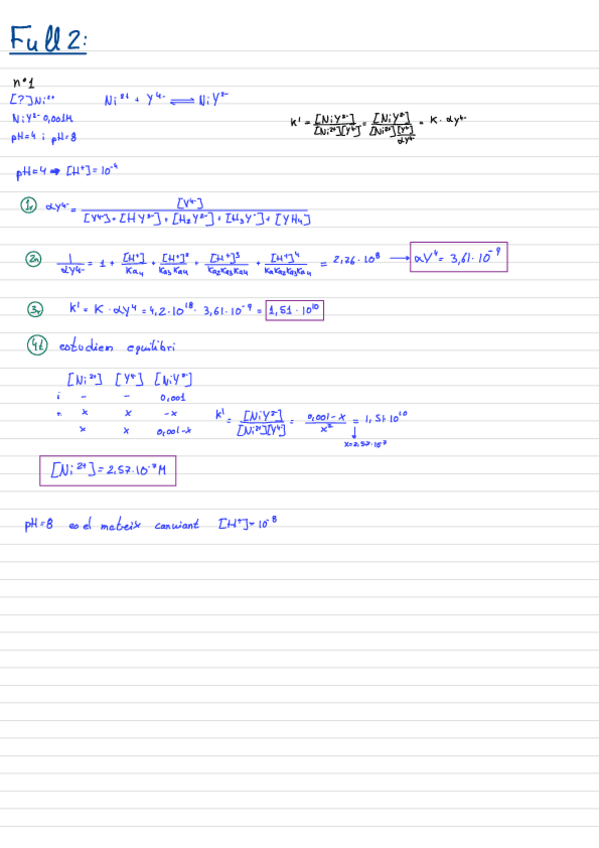 Full 2:
n°1
[?] Ni²⁺ Ni²⁺ + Y⁴⁻ ⇌ NiY²⁻
NiY²⁻ 0,001M K' = [NiY²⁻]/[Ni²⁺][Y⁴⁻]' = [NiY²⁻]/([Ni²⁺][Y⁴⁻]/αY⁴⁻) = K · αY⁴⁻
pH=4 i pH=8
pH=4 → [H⁺]=10⁻⁴
1r αY⁴⁻ = [Y⁴⁻]/([Y⁴⁻]+[HY³⁻]+[H₂Y²⁻]+[H₃Y⁻]+[YH₄])
2n 1/αY⁴⁻ = 1 + [H⁺]/Ka₄ + [H⁺]²/Ka₃Ka₄ + [H⁺]³/Ka₂Ka₃Ka₄ + [H⁺]⁴/Ka₁Ka₂Ka₃Ka₄ = 2,76·10⁸ → αY⁴ = 3,61·10⁻⁹
3r K' = K · αY⁴ = 4,2·10¹⁸ · 3,61·10⁻⁹ = 1,51·10¹⁰
4t estudiem equilibri
[Ni²⁺] [Y⁴⁻] [NiY²⁻]
i - - 0,001
x x -x K' = [NiY²⁻]/[Ni²⁺][Y⁴⁻] = (0,001-x)/x² = 1,51·10¹⁰
x x 0,001-x
x=2,57·10⁻⁷
[Ni²⁺]=2,57·10⁻⁷M
pH=8 es el mateix canviant [H⁺]=10⁻⁸